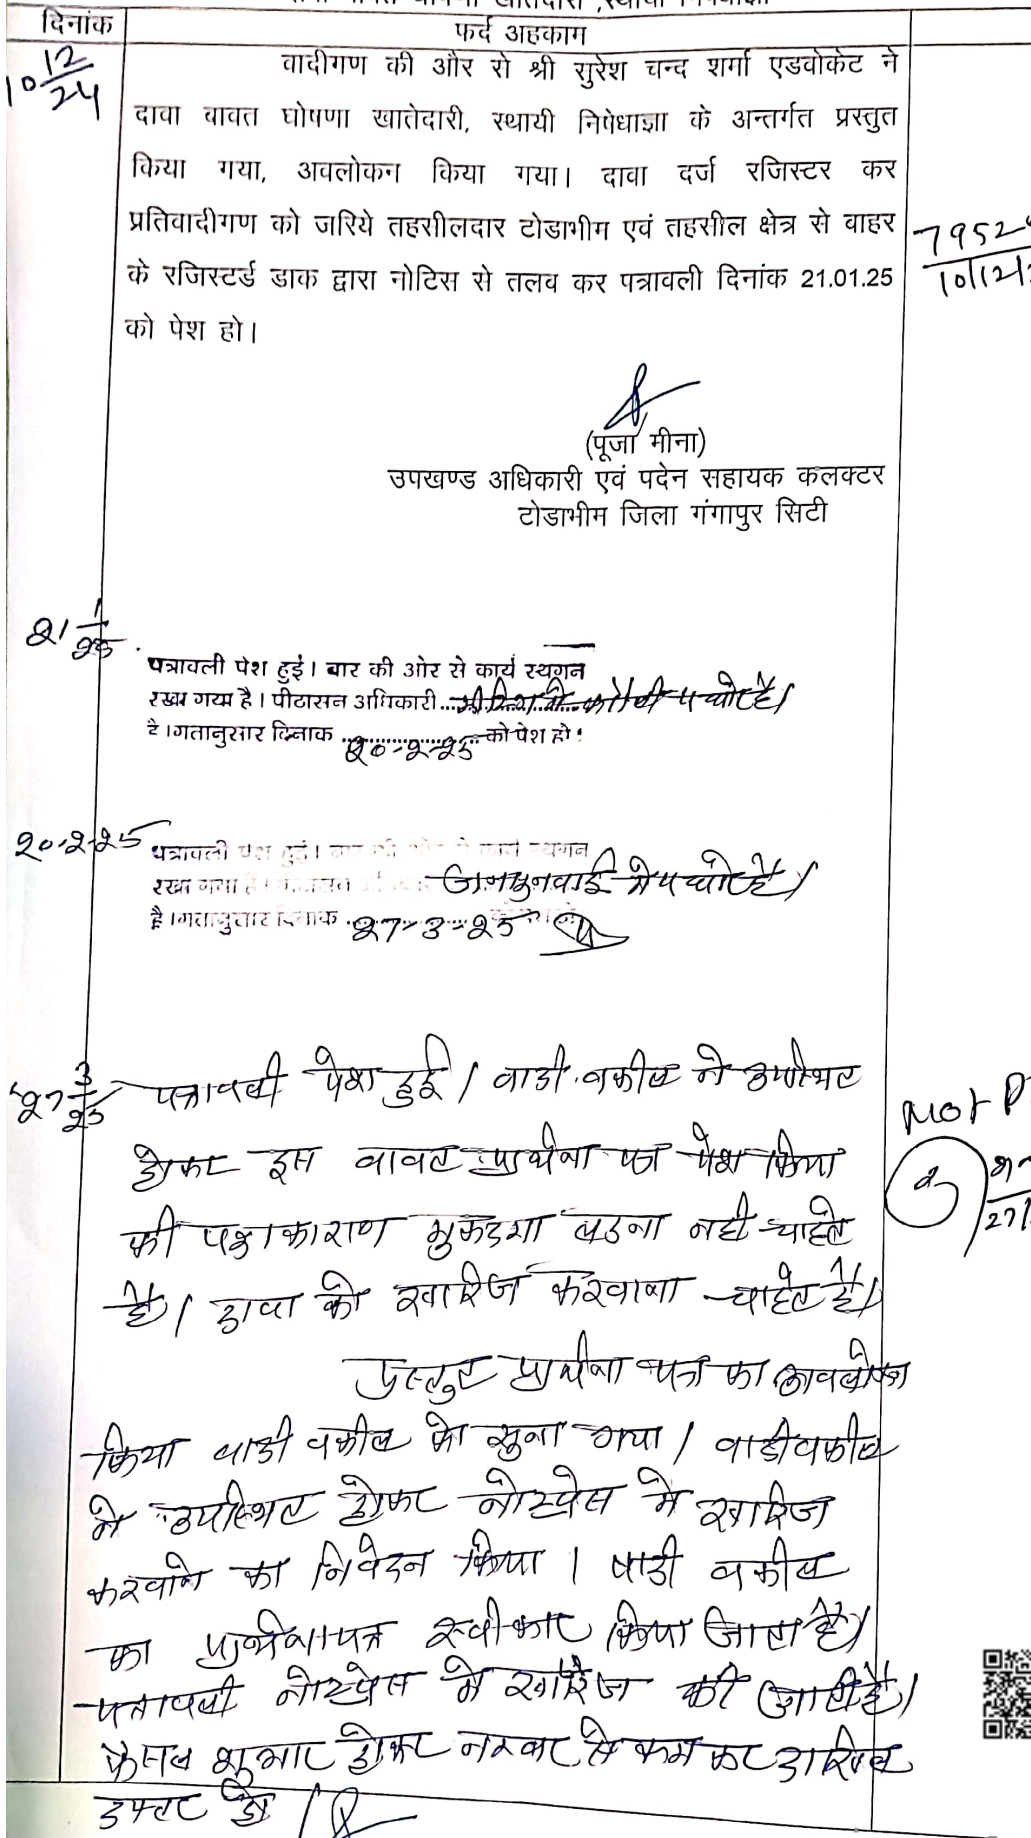 दिनांक
फर्द अहकाम
10 12/24
वादीगण की और से श्री सुरेश चन्द शर्मा एडवोकेट ने
दावा बावत घोषणा खातेदारी, स्थायी निषेधाज्ञा के अन्तर्गत प्रस्तुत
किया गया, अवलोकन किया गया। दावा दर्ज रजिस्टर कर
प्रतिवादीगण को जरिये तहसीलदार टोडाभीम एवं तहसील क्षेत्र से बाहर
के रजिस्टर्ड डाक द्वारा नोटिस से तलव कर पत्रावली दिनांक 21.01.25
को पेश हो।
7952
10/12/
(पूजा मीना)
उपखण्ड अधिकारी एवं पदेन सहायक कलक्टर
टोडाभीम जिला गंगापुर सिटी
21 1/25
पत्रावली पेश हुई। बार की ओर से कार्य स्थगन
रखा गया है। पीठासन अधिकारी
है।गतानुसार दिनांक 20-2-25 को पेश हो।
20-2-25
पत्रावली पेश हुई। बार की ओर से कार्य स्थगन
रखा गया है। जनसुनवाई मे पधारे है।
है।गतानुसार दिनांक 27-3-25
27 3/25
पत्रावली पेश हुई। वादी वकील ने उपस्थित
होकर इस बावत प्रार्थना पत्र पेश किया
की पक्षकाराण मुकदमा लडना नही चाहते
है। दावा को खारिज करवाना चाहते है।
Not P
प्रस्तुत प्रार्थना पत्र का अवलोकन
किया वादी वकील को सुना गया। वादी वकील
ने उपस्थित होकर नोटप्रेस मे खारिज
करवाने का निवेदन किया। वादी वकील
का प्रार्थनापत्र स्वीकार किया जाता है।
पत्रावली नोटप्रेस मे खारिज की जाती है।
फैसल शुमार होकर नम्बर से कम कर दाखिल
दफ्तर हो।